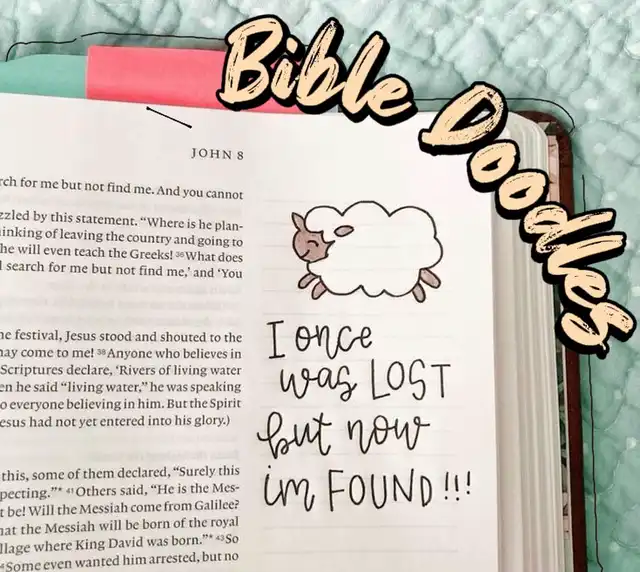 Bible Doodles
JOHN 8
rch for me but not find me. And you cannot
zzled by this statement. “Where is he plan-
inking of leaving the country and going to
he will even teach the Greeks! 36What does
l search for me but not find me,’ and ‘You
he festival, Jesus stood and shouted to the
nay come to me! 38Anyone who believes in
Scriptures declare, ‘Rivers of living water
en he said “living water,” he was speaking
o everyone believing in him. But the Spirit
esus had not yet entered into his glory.)
this, some of them declared, “Surely this
pecting.”* 41Others said, “He is the Mes-
t be! Will the Messiah come from Galilee?
hat the Messiah will be born of the royal
llage where King David was born.”* 43So
Some even wanted him arrested, but no
I once
was LOST
but now
im FOUND!!!